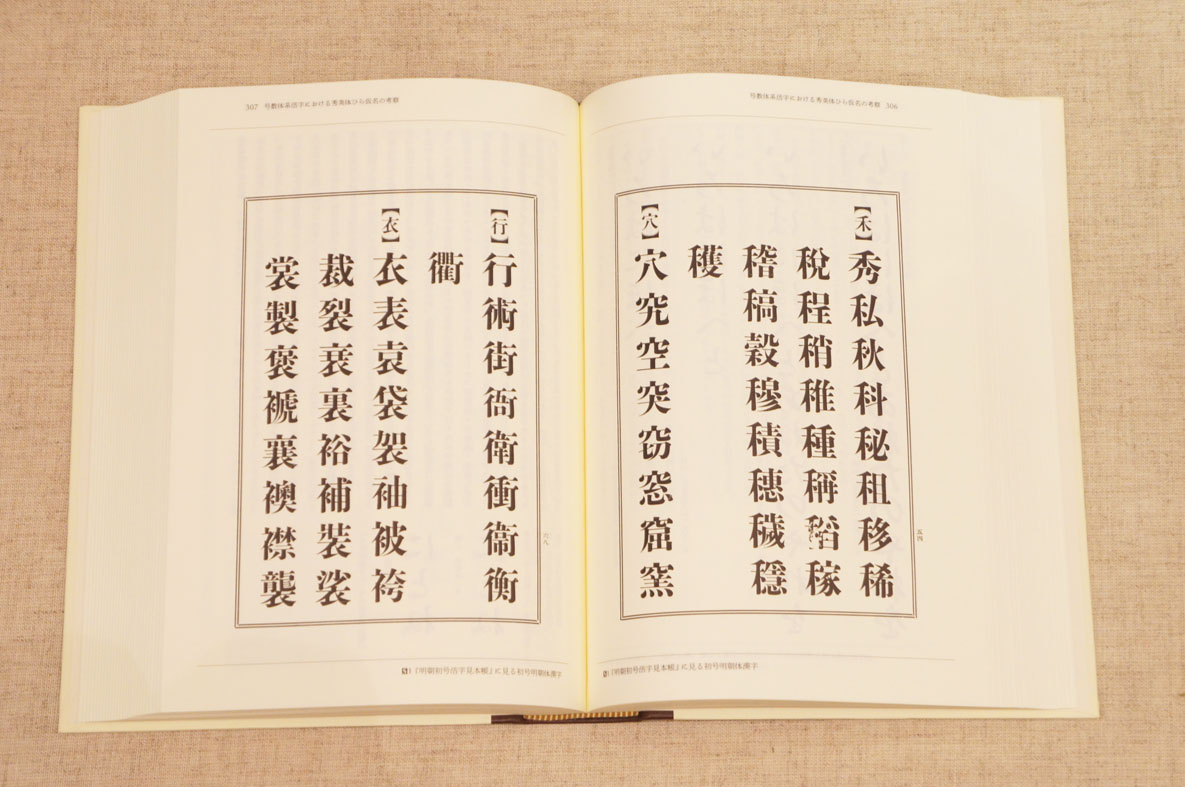 号数体系活字における秀英体ひら仮名の考察 306
【禾】
秀私秋科秘租移稀
税程稍稚種稱稻稼
稽稿穀穆積穗穢穩
穫
【穴】
穴究空突窃窓窟窯
五四
S)『明朝初号活字見本帳』に見る初号明朝体漢字
307 号数体系活字における秀英体ひら仮名の考察
【行】
行術街衙衛衝衞衡
衢
【衣】
衣表袁袋袈袖被袴
裁裂衰裏裕補裝裟
裳製褒褫襄襖襟襲
六八
S)『明朝初号活字見本帳』に見る初号明朝体漢字